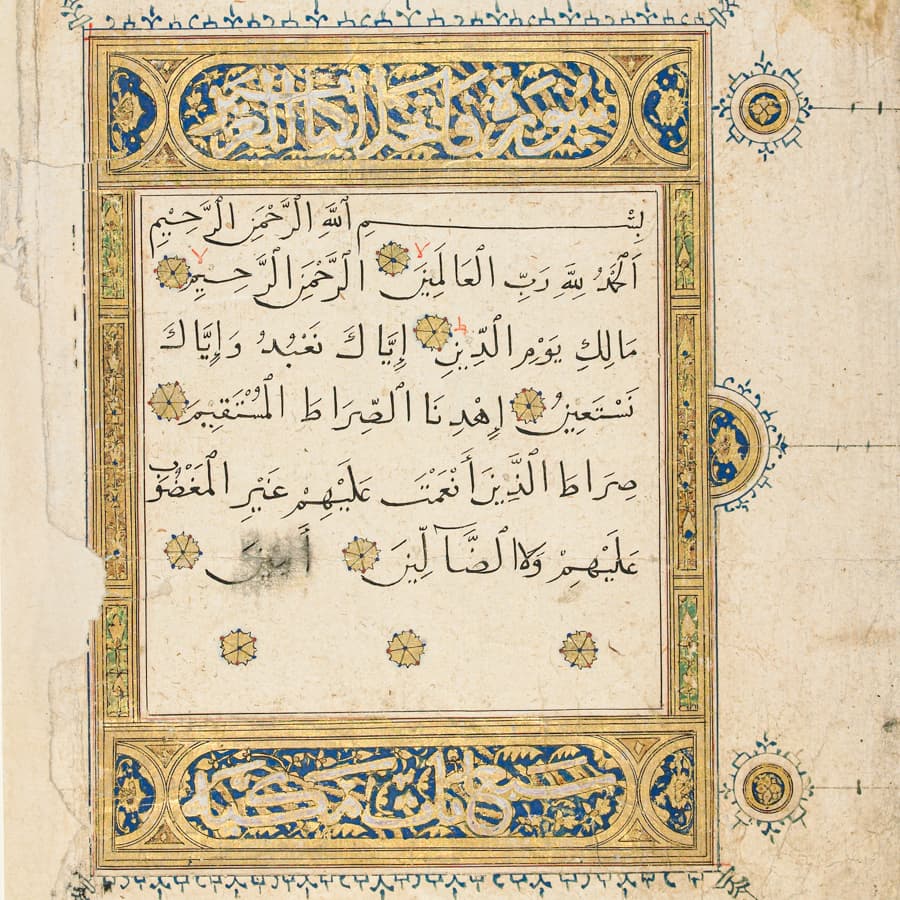 سورة فاتحة الكتاب العزيز
بِسْمِ اللَّهِ الرَّحْمَنِ الرَّحِيْمِ
اَلْحَمْدُ لِلَّهِ رَبِّ الْعَالَمِيْنَ لا الرَّحْمَنِ الرَّحِيْمِ لا
مَالِكِ يَوْمِ الدِّيْنِ ط إِيَّاكَ نَعْبُدُ وَإِيَّاكَ
نَسْتَعِيْنُ إِهْدِنَا الصِّرَاطَ الْمُسْتَقِيْمَ
صِرَاطَ الَّذِيْنَ أَنْعَمْتَ عَلَيْهِمْ غَيْرِ الْمَغْضُوْبِ
عَلَيْهِمْ وَلَا الضَّآلِّيْنَ أَمِيْنَ
سبع ايات مكية